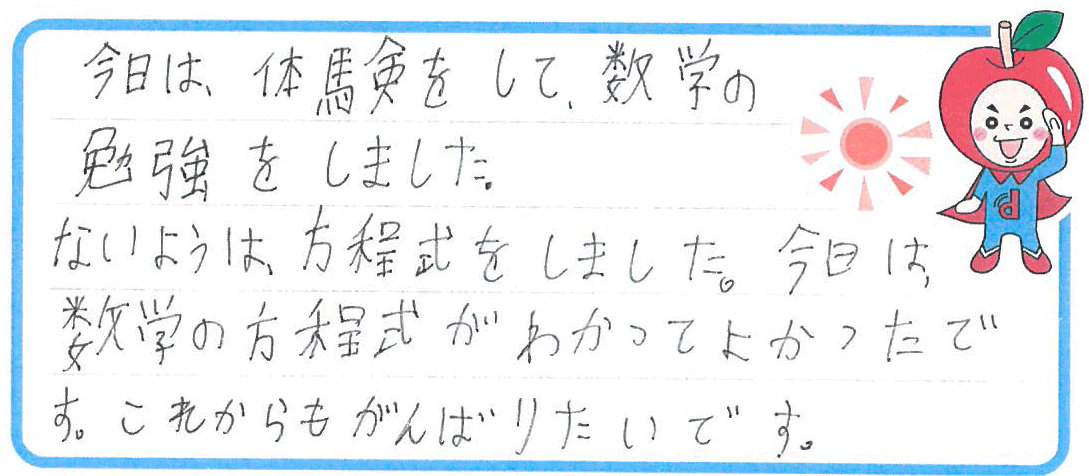 今日は、体験をして、数学の
勉強をしました。
ないようは、方程式をしました。今日は、
数学の方程式がわかってよかったで
す。これからもがんばりたいです。